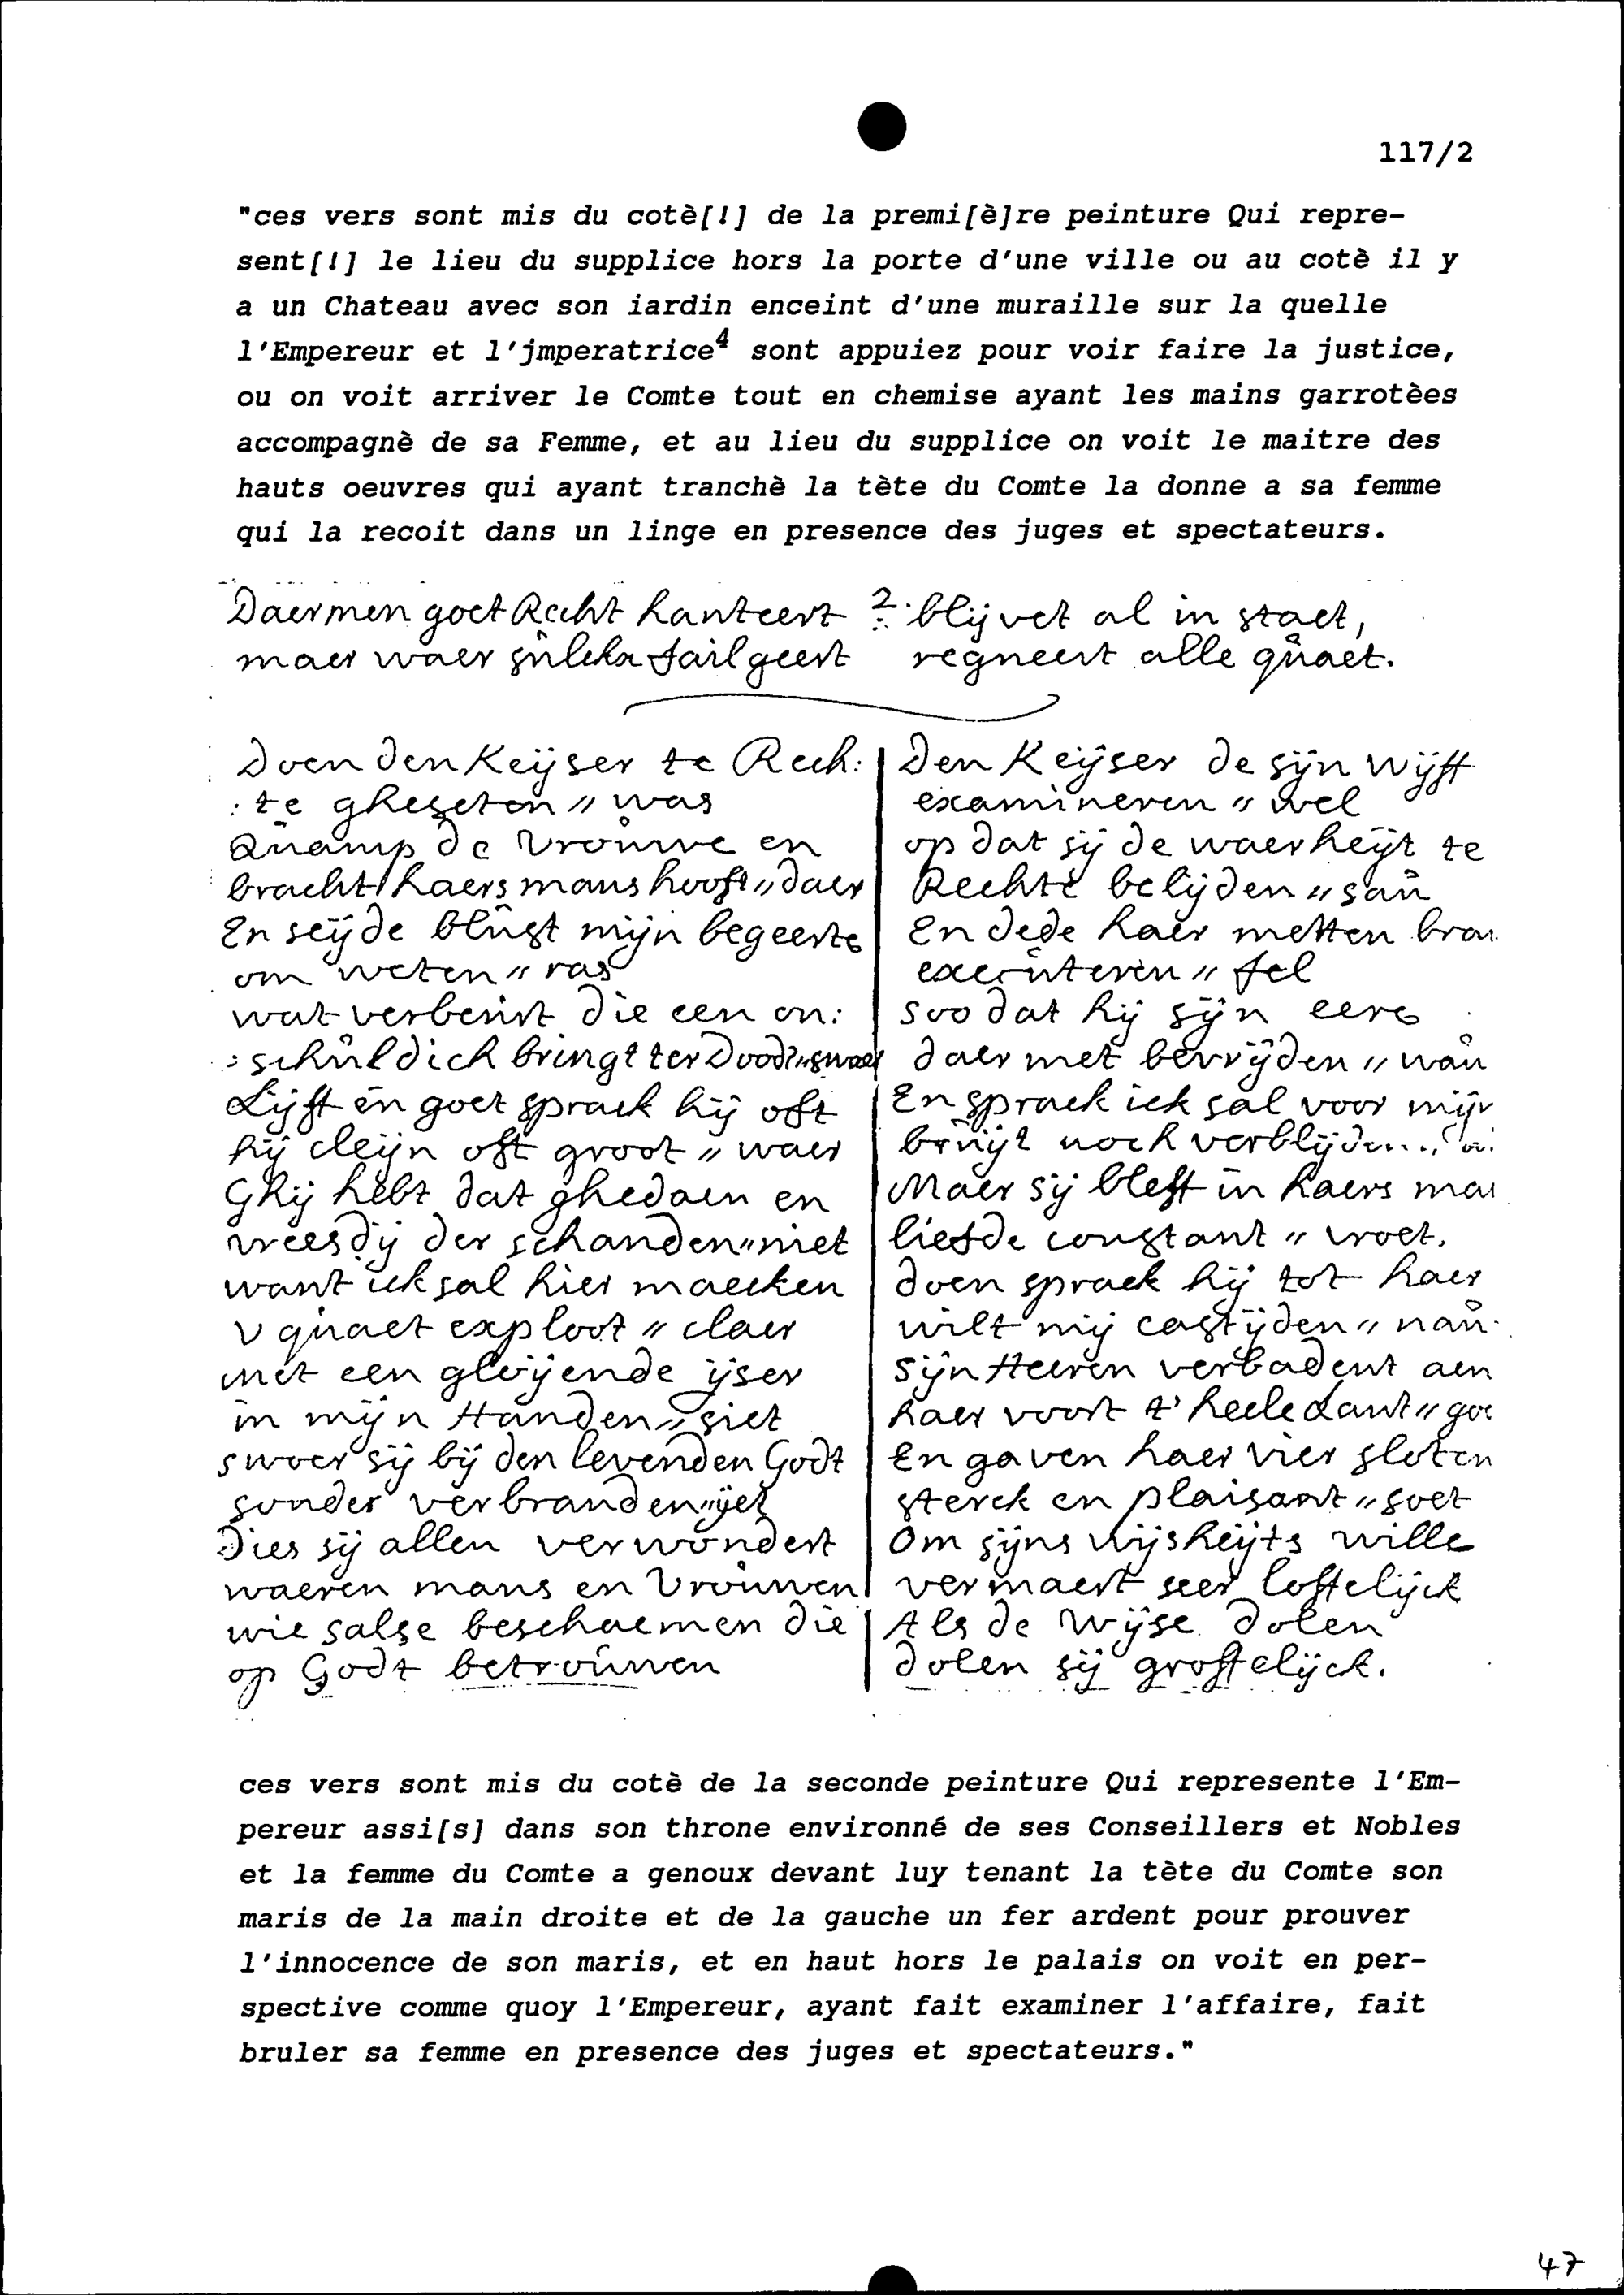 117/2
"ces vers sont mis du cotè[!] de la premi[è]re peinture Qui repre-
sent[!] le lieu du supplice hors la porte d'une ville ou au cotè il y
a un Chateau avec son iardin enceint d'une muraille sur la quelle
l'Empereur et l'jmperatrice4 sont appuiez pour voir faire la justice,
ou on voit arriver le Comte tout en chemise ayant les mains garrotèes
accompagnè de sa Femme, et au lieu du supplice on voit le maitre des
hauts oeuvres qui ayant tranchè la tète du Comte la donne a sa femme
qui la recoit dans un linge en presence des juges et spectateurs.
Daermen goet Recht hanteert 2: blijvet al in staet,
maer waer sulckx failgeert regneert alle quaet.
Doen den Keijser te Rech:
:te gheseten " was
Quamp de Vrouwe en
bracht haers mans hooft " daer
En seijde blust mijn begeerte
om weten " ras
wat verbeurt die een on:
:schuldich bringt ter Doodt " swaer
Lijft en goet sprack hij oft
hij cleijn oft groot " waer
Ghij hebt dat ghedaen en
vreesdij der schanden " niet
want ick sal hier maecken
v quaet exploot " claer
met een gloijende ijser
in mijn Handen " siet
swoer sij bij den levenden Godt
sonder verbranden " ijet
Dies sij allen verwondert
waeren mans en Vrouwen
wie salse beschaemen die
op Godt betrouwen
Den Keijser de sijn wijff
examineren " wel
op dat sij de waerheijt te
Rechte belijden " sau
En dede haer metten bran
executeren " fel
soo dat hij sijn eere
daer met bevrijden " wau
En sprack ick sal voor mijn
bruijt noch verblijden "
Maer sij bleff in haers man
liefde constant " vroet.
doen sprack hij tot haer
wilt mij castijden " nau
Sijn Heeren verbadent aen
haer voort t' heele Lant " goe
En gaven haer vier sloten
sterck en plaisant " soet
Om sijns wijsheijts wille
vermaert seer loffelijck
Als de wijse dolen
dolen sij groffelijck.
ces vers sont mis du cotè de la seconde peinture Qui represente l'Em-
pereur assi[s] dans son throne environné de ses Conseillers et Nobles
et la femme du Comte a genoux devant luy tenant la tète du Comte son
maris de la main droite et de la gauche un fer ardent pour prouver
l'innocence de son maris, et en haut hors le palais on voit en per-
spective comme quoy l'Empereur, ayant fait examiner l'affaire, fait
bruler sa femme en presence des juges et spectateurs."
47